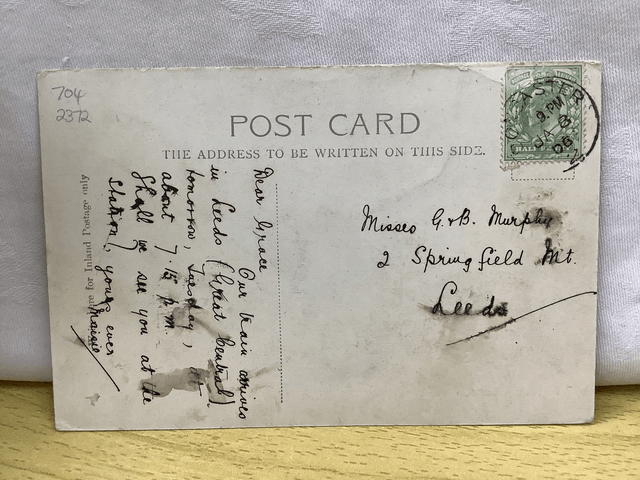 704
2372
POST CARD
THE ADDRESS TO BE WRITTEN ON THIS SIDE.
CASTER
9. PM
JA 8
06
HALF PENNY
Misses G. & B. Murphy
2 Springfield Mt.
Leeds
Dear Grace
Our train arrives
in Leeds (Great Central)
tomorrow, Tuesday, at
about 7.15 p.m.
Shall we see you at the
station? yours ever
Maisie
for Inland Postage only